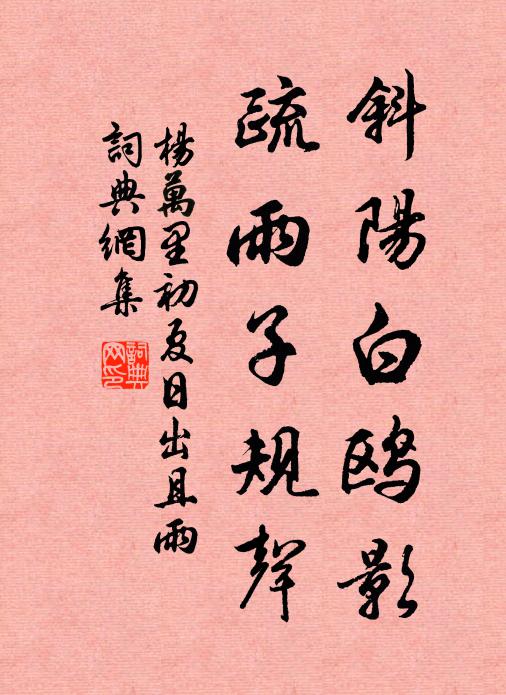 斜陽白鷗影
疏雨子規聲
楊萬里初夏日出且雨
詞典網集
詞典网印